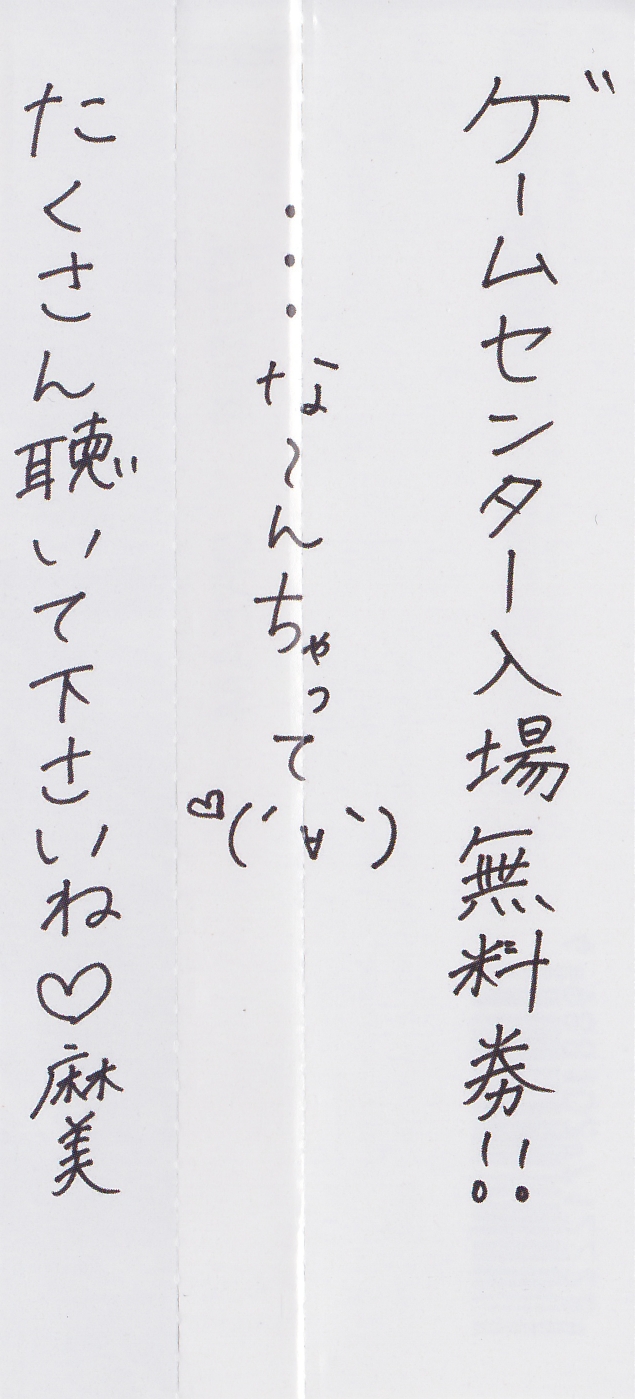 ゲームセンター入場無料券!!
・・・な〜んちゃって♡(´∀`)
たくさん聴いて下さいね♡麻美